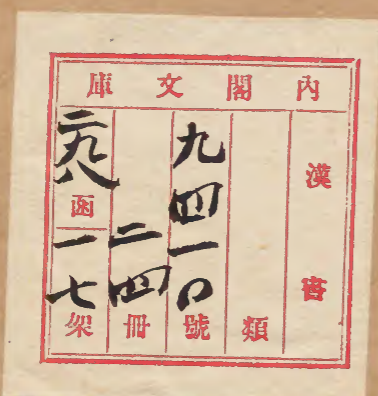 內閣文庫
漢書
類
九四一〇號
二四冊
二九八函
一七架